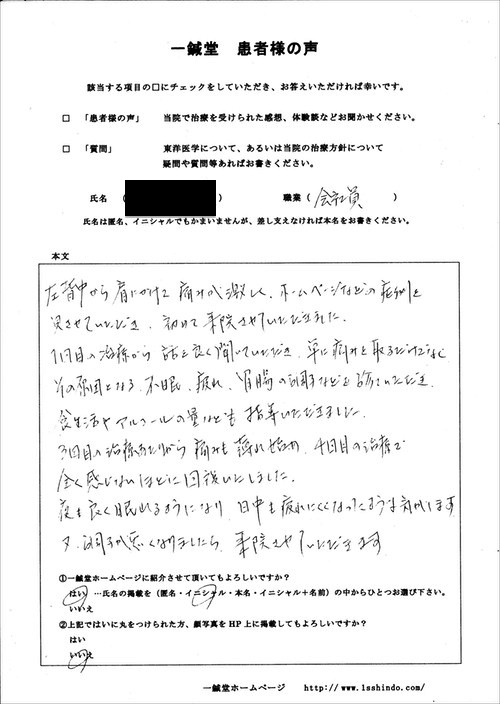 一鍼堂 患者様の声
該当する項目の□にチェックをしていただき、お答えいただければ幸いです。
□ 「患者様の声」 当院で治療を受けられた感想、体験談などお聞かせください。
□ 「質問」 東洋医学について、あるいは当院の治療方針について
疑問や質問等あればお書きください。
氏名 ( ) 職業 ( 会社員 )
氏名は匿名、イニシャルでもかまいませんが、差し支えなければ本名をお書きください。
本文
左背中から肩にかけて痛みが激しく、ホームページなどの症例を
見させていただき、初めて来院させていただきました。
1回目の治療から話を良く聞いていただき、単に痛みを取るだけでなく
その原因となる、不眠、疲れ、胃腸の調子などを診ていただき、
食生活やアルコールの量なども指導いただきました。
3回目の治療あたりから痛みも薄れ始め、4回目の治療で
全く感じないほどに回復いたしました。
夜も良く眠れるようになり、日中も疲れにくくなったような気がします
又、調子が悪くなりましたら、来院させていただきます
①一鍼堂ホームページに紹介させて頂いてもよろしいですか?
はい …氏名の掲載を(匿名・イニシャル・本名・イニシャル+名前)の中からひとつお選び下さい。
いいえ
②上記ではいに丸をつけられた方、顔写真をHP上に掲載してもよろしいですか?
はい
いいえ
一鍼堂ホームページ http://www.1sshindo.com/